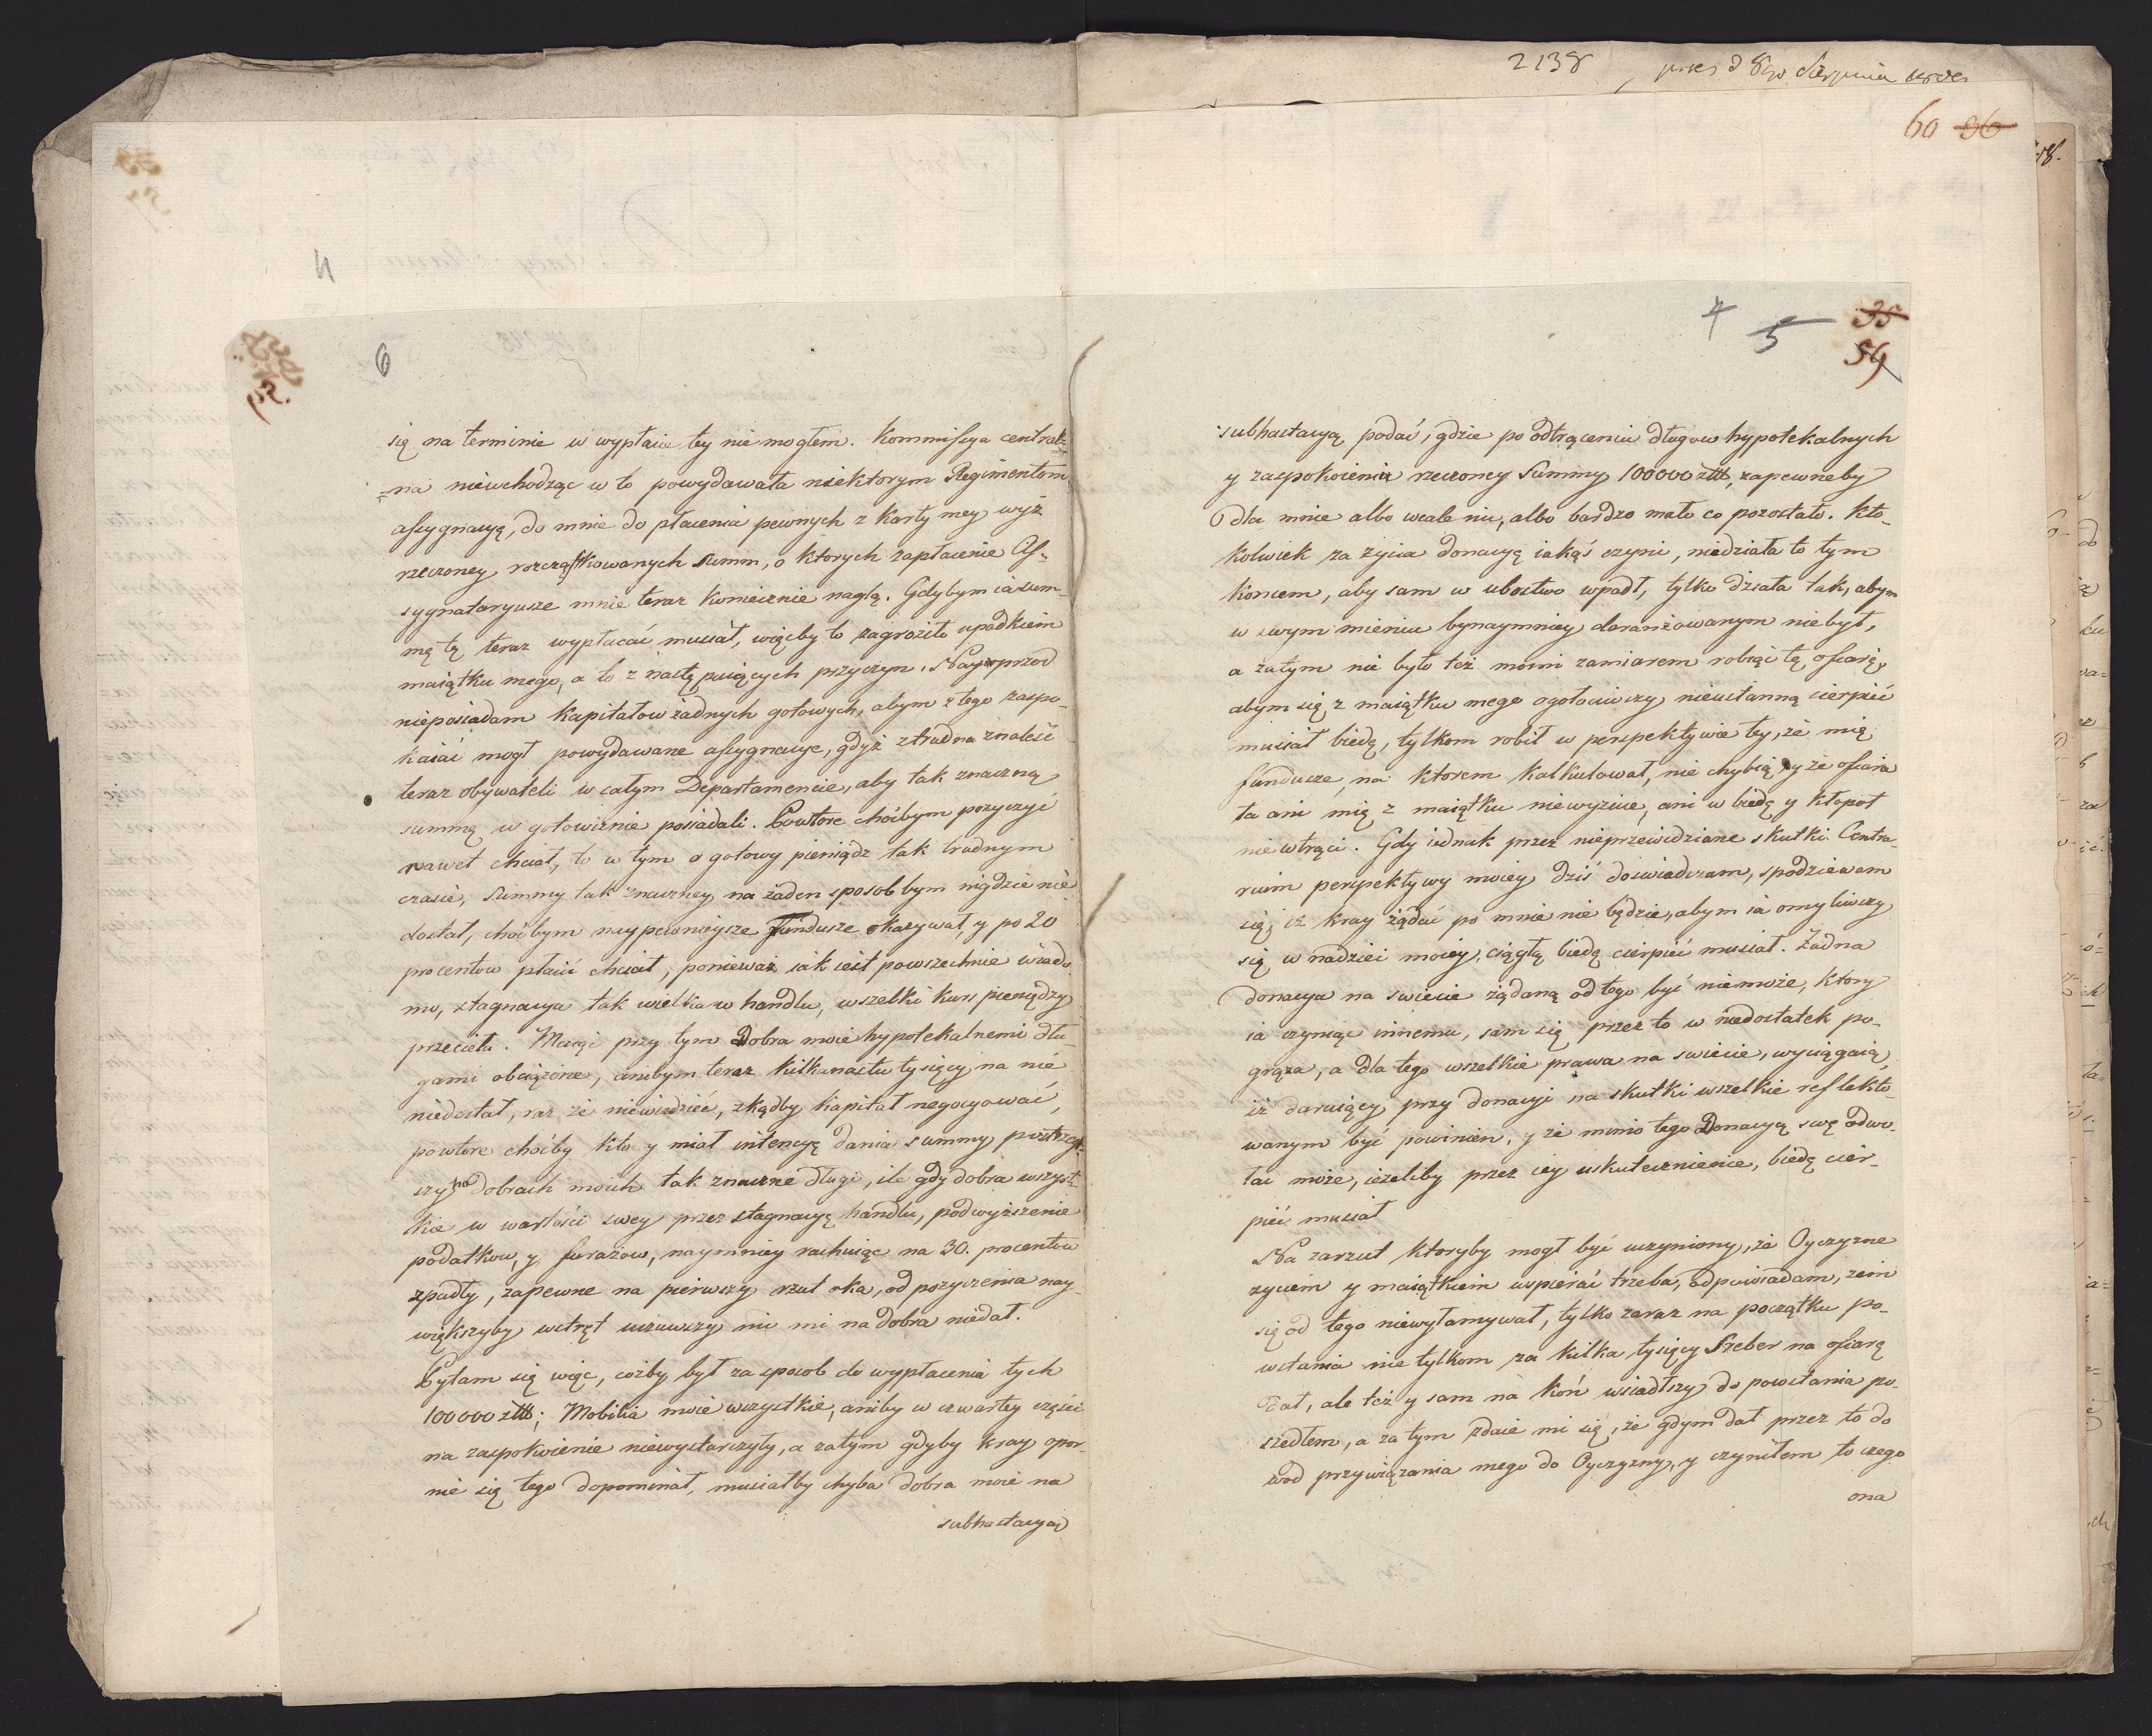 2138
60 96
6
się na terminie w wypłacie tey nie mogłem. Kommissya central-
-na niewchodząc w to powydawała niektorym Regimentom
assygnacyę, do mnie do płacenia pewnych z Karty mey wyż
rzeczoney rozcząstkowanych summ, o ktorych zapłacenie As-
sygnataryusze mnie teraz koniecznie naglą. Gdybym ia sum-
mę tę teraz wypłacać musiał, więcby to zagroziło upadkiem
maiątku mego, a to z następuiących przyczyn. Nayprzod
nieposiadam Kapitałow żadnych gotowych, abym z tego zaspo-
kaiać mogł powydawane assygnacye, gdyż z trudna znaleść
teraz obywateli w całym Departamencie, aby tak znaczną
summę w gotowiznie posiadali. Powtore choćbym pozyczyć
nawet chciał, to w tym o gotowy pieniądz tak trudnym
czasie, summy tak znaczney na żaden sposob bym nigdzie nie
dostał, choćbym naypewnieysze fundusze okazywał, y po 20
procentow płacić chciał, ponieważ iak iest powszechnie wiado
mo, stagnacya tak wielka w handlu, wszelki kurs pieniędzy
przecieła. Maiąc przy tym Dobra moie hypotekalnemi dłu-
gami obciążone, anibym teraz kilkunastu tysięcy na nie
niedostał, raz że niewiedzieć, zkądby kapitał negocyować,
powtore choćby kto y miał intencyę dania summy, postrzegł-
szy na dobrach moich tak znaczne długi, ile gdy dobra wszyst-
kie w wartości swey przez stagnacyę handlu, podwyższenie
podatkow, y furażow, naymniey rachuiąc na 30. procentow
spadły, zapewne na pierwszy rzut oka, od pozyczenia nay-
większyby wstręt uczuwszy nic mi na dobra niedał.
Pytam się więc, coźby był za sposob do wypłacenia tych
100000 złł; Mobilia moie wszystkie, aniby w czwartey części
na zaspokoienie niewystarczyły, a zatym gdyby kray opor-
nie się tego dopominał, musiałby chyba dobra moie na
subhastacyą
4 5
35
59
subhastacyą podać, gdzie po odtrąceniu długow hypotekalnych
y zaspokoieniu rzeczoney Summy 100000 złł, zapewneby
dla mnie albo wcale nic, albo bardzo mało co pozostało. Kto-
kolwiek za życia donacyę iakąś czyni, niedziała to tym
koncem, aby sam w ubostwo wpadł, tylko działa tak, abym
w swym mieniu bynaymniey deranżowanym niebył,
a zatym nie było też moim zamiarem robiąc tę ofiarę,
abym się z maiątku mego ogołociwszy nieustanną cierpieć
musiał biedę, tylkom robił w perspektywie tey, że mię
fundusze, na ktorem kalkulował, nie chybią y że ofiara
ta ani mię z maiątku niewyzuie, ani w biedę y kłopot
nie wtrąci. Gdy iednak przez nieprzewidziane skutki Contra-
rium perspektywy moiey dziś doświadczam, spodziewam
się, iż kray żądać po mnie nie będzie, abym ia omyliwszy
się w nadziei moiey, ciągłą biedę cierpieć musiał. Żadna
donacya na swiecie żądaną od tego być niemoże, ktory
ia czyniąc innemu, sam się przez to w niedostatek po-
grąża, a dla tego wszelkie prawa na swiecie, wyciągaią,
iż daruiący przy donacyi na skutki wszelkie reflekto-
wanym być powinien, y że mimo tego Donacyą swę odwo-
łać może, ieżeliby przez iey uskutecznienie, biedę cier-
pieć musiał
Na zarzut ktoryby mogł być uczyniony, że Oyczyzne
zyciem y maiątkiem wspierać trzeba, odpowiadam, żem
się od tego niewyłamywał, tylko zaraz na początku po-
wstania nie tylkom za kilka tysięcy Sreber na ofiarę
dał, ale też y sam na koń wsiadłszy do powstania po-
szedłem, a za tym zdaie mi się, że gdym dał przez to do
wod przywiązania mego do Oyczyzny, y czyniłem to czego
ona